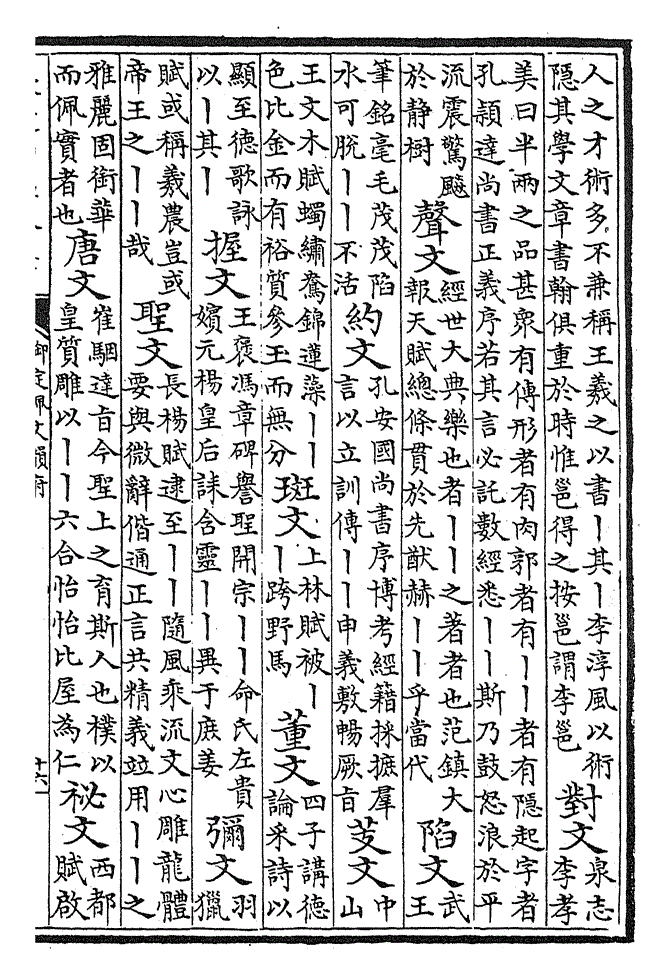 人之才術多不兼稱王羲之以書丨其丨李淳風以術
隱其學文章書翰俱重於時惟邕得之按邕謂李邕
對文
泉志
李孝
美曰半兩之品甚衆有傳形者有肉郭者有丨丨者有隱起字者
孔穎達尚書正義序若其言必託數經悉丨丨斯乃鼓怒浪於平
流震驚飈
於静樹
聲文
經世大典樂也者丨丨之著者也范鎮大
報天賦總條貫於先猷赫丨丨乎當代
陷文
武
王
筆銘毫毛茂茂陷
水可脫丨丨不活
約文
孔安國尚書序博考經籍採摭羣
言以立訓傳丨丨申義敷暢厥旨
芟文
中
山
王文木賦蠋繡鴦錦蓮藻丨丨
色比金而有裕質參玉而無分
斑文
上林賦被丨
丨跨野馬
董文
四子講德
論采詩以
顯至德歌詠
以丨其丨
握文
王褒馮章碑譽聖開宗丨丨命氏左貴
嬪元楊皇后誄含靈丨丨異于庶姜
彌文
羽
獵
賦或稱羲農豈或
帝王之丨丨哉
聖文
長楊賦逮至丨丨隨風乘流文心雕龍體
要與微辭偕通正言共精義竝用丨丨之
雅麗固銜華
而佩實者也
唐文
崔駰達旨今聖上之育斯人也樸以
皇質雕以丨丨六合怡怡比屋為仁
祕文
西都
賦啟
御定佩文韻府